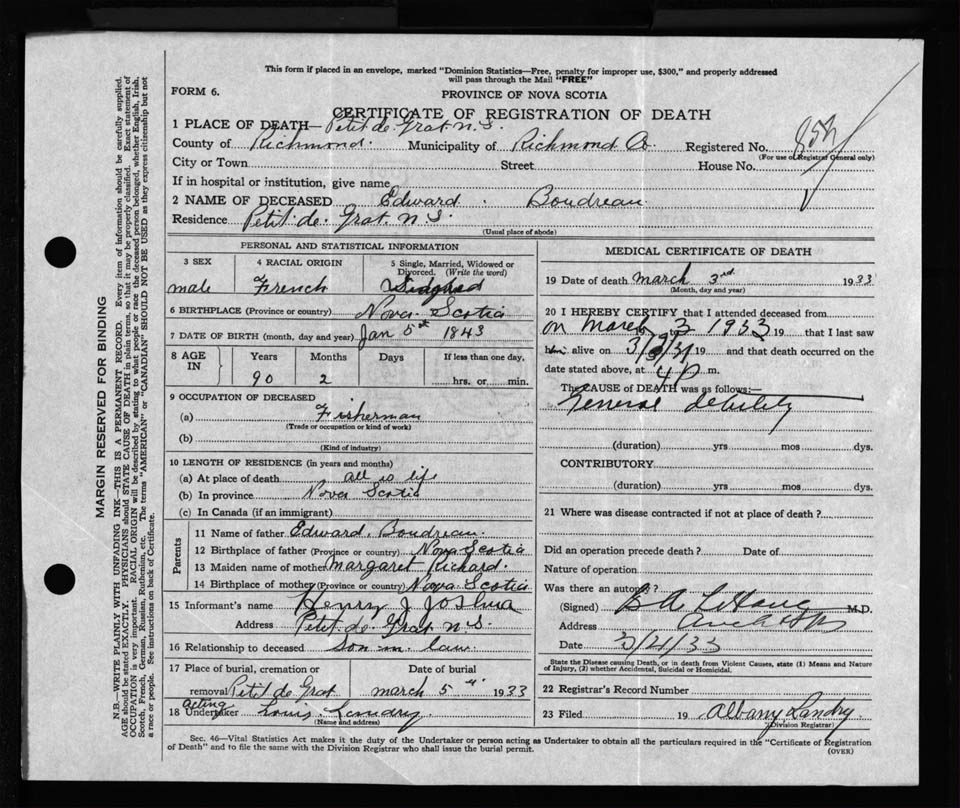 This form if placed in an envelope, marked "Dominion Statistics—Free, penalty for improper use, $300," and properly addressed
will pass through the Mail "FREE"
FORM 6.
PROVINCE OF NOVA SCOTIA
CERTIFICATE OF REGISTRATION OF DEATH
1 PLACE OF DEATH— Petit de Grat N.S.
County of Richmond. Municipality of Richmond Co. Registered No.
(For use of Registrar General only)
City or Town Street House No.
If in hospital or institution, give name
2 NAME OF DECEASED Edward Boudreau
Residence Petit de Grat N.S.
(Usual place of abode)
PERSONAL AND STATISTICAL INFORMATION
3 SEX 4 RACIAL ORIGIN 5 Single, Married, Widowed or Divorced. (Write the word)
male French
6 BIRTHPLACE (Province or country) Nova Scotia
7 DATE OF BIRTH (month, day and year) Jan 5th 1843
8 AGE IN Years Months Days If less than one day,
90 2 hrs. or min.
9 OCCUPATION OF DECEASED
(a) Fisherman
(Trade or occupation or kind of work)
(b)
(Kind of industry)
10 LENGTH OF RESIDENCE (in years and months)
(a) At place of death all is life
(b) In province Nova Scotia
(c) In Canada (if an immigrant)
Parents
11 Name of father Edward Boudreau
12 Birthplace of father (Province or country) Nova Scotia
13 Maiden name of mother Margaret Richard.
14 Birthplace of mother (Province or country) Nova Scotia
15 Informant's name Henry J Joshua
Address Petit de Grat N.S.
16 Relationship to deceased Son in law
17 Place of burial, cremation or Date of burial
removal Petit de Grat march 5th 1933
18 acting Undertaker Louis Landry
(Name and address)
MEDICAL CERTIFICATE OF DEATH
19 Date of death march 3rd 1933
(Month, day and year)
20 I HEREBY CERTIFY that I attended deceased from
on March 3 1933 19 that I last saw
him alive on 19 and that death occurred on the
date stated above, at 4 p m.
The CAUSE of DEATH was as follows:—
General debility
(duration) yrs mos dys.
CONTRIBUTORY
(duration) yrs mos dys.
21 Where was disease contracted if not at place of death?
Did an operation precede death? Date of
Nature of operation
Was there an autopsy?
(Signed) M.D.
Address
Date 3/4/33
State the Disease causing Death, or in death from Violent Causes, state (1) Means and Nature
of Injury, (2) whether Accidental, Suicidal or Homicidal.
22 Registrar's Record Number
23 Filed 19 Albany Landry
(Division Registrar)
Sec. 46—Vital Statistics Act makes it the duty of the Undertaker or person acting as Undertaker to obtain all the particulars required in the "Certificate of Registration
of Death" and to file the same with the Division Registrar who shall issue the burial permit. (OVER)
MARGIN RESERVED FOR BINDING
N.B.—WRITE PLAINLY WITH UNFADING INK—THIS IS A PERMANENT RECORD. Every item of information should be carefully supplied.
AGE should be stated EXACTLY. PHYSICIANS should STATE CAUSE OF DEATH in plain terms, so that it may be properly classified. Exact statement of
OCCUPATION is very important. RACIAL ORIGIN will be described by stating to what people or race the deceased person belonged, whether English, Irish,
Scotch, French, German, Russian, Ruthenian, etc. The terms "AMERICAN" or "CANADIAN" SHOULD NOT BE USED as they express citizenship but not
a race or people. See instructions on back of Certificate.